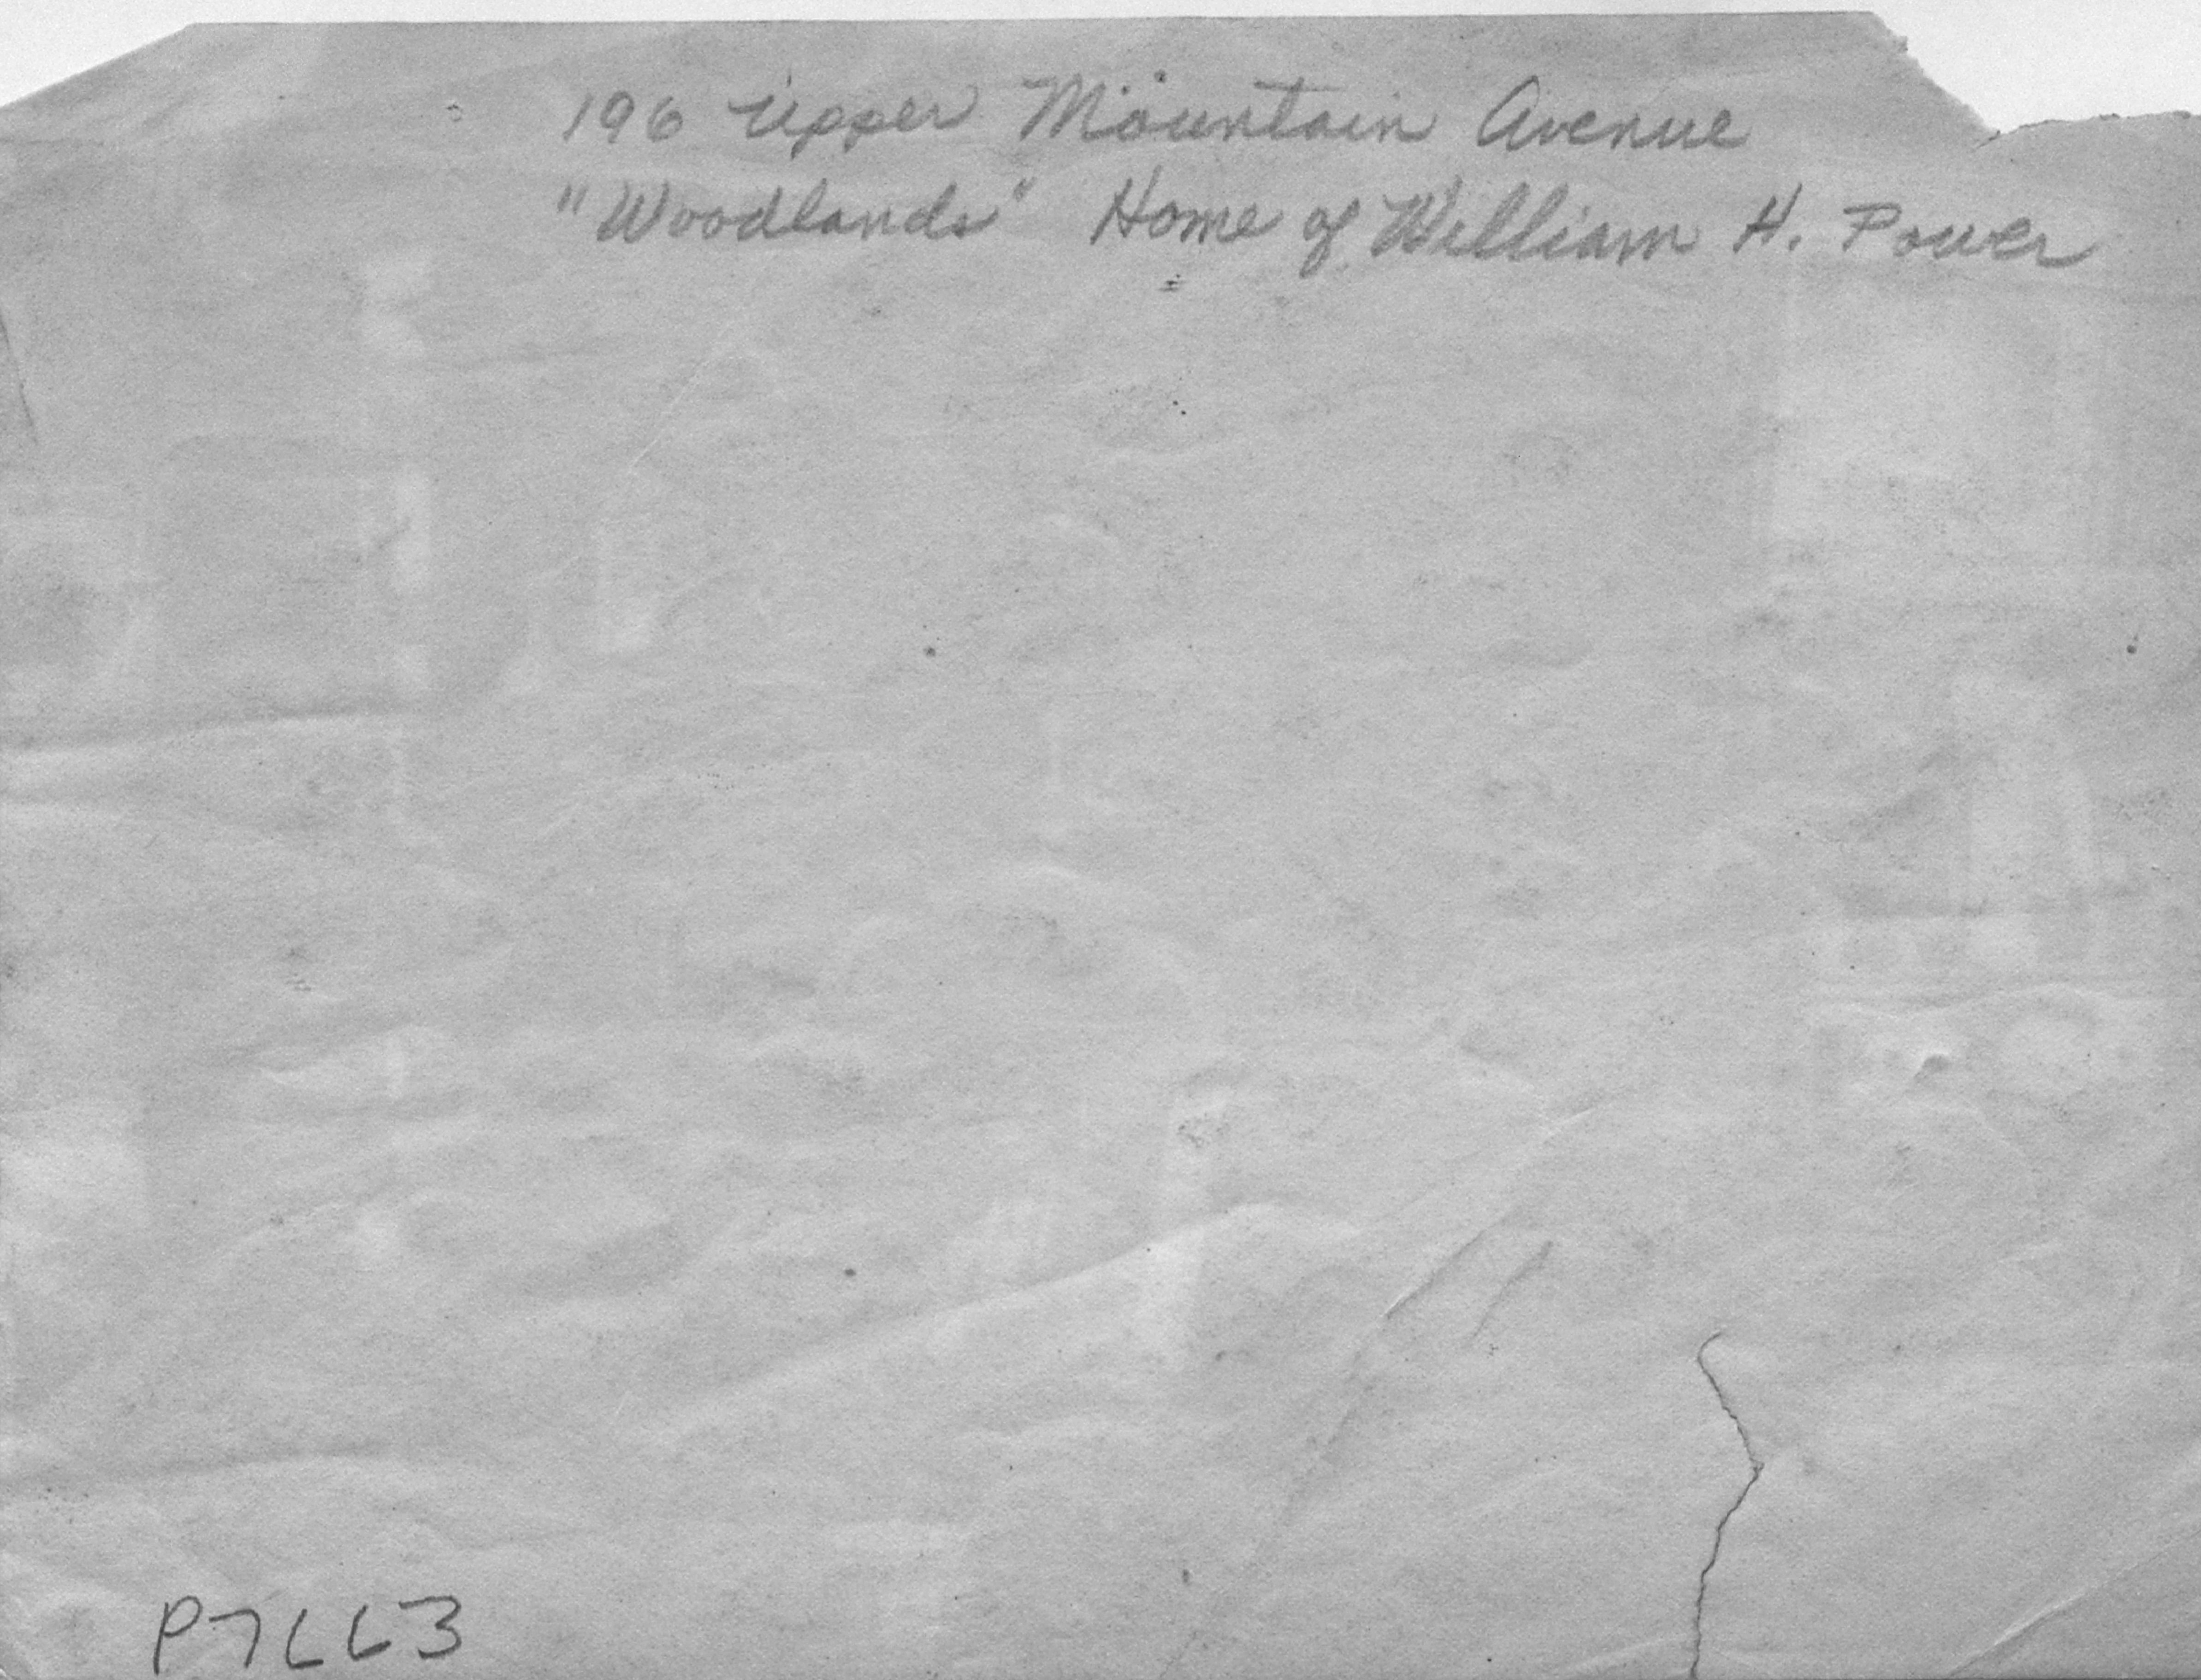 196 Upper Mountain Avenue
"Woodlands" Home of William H. Power
P7663